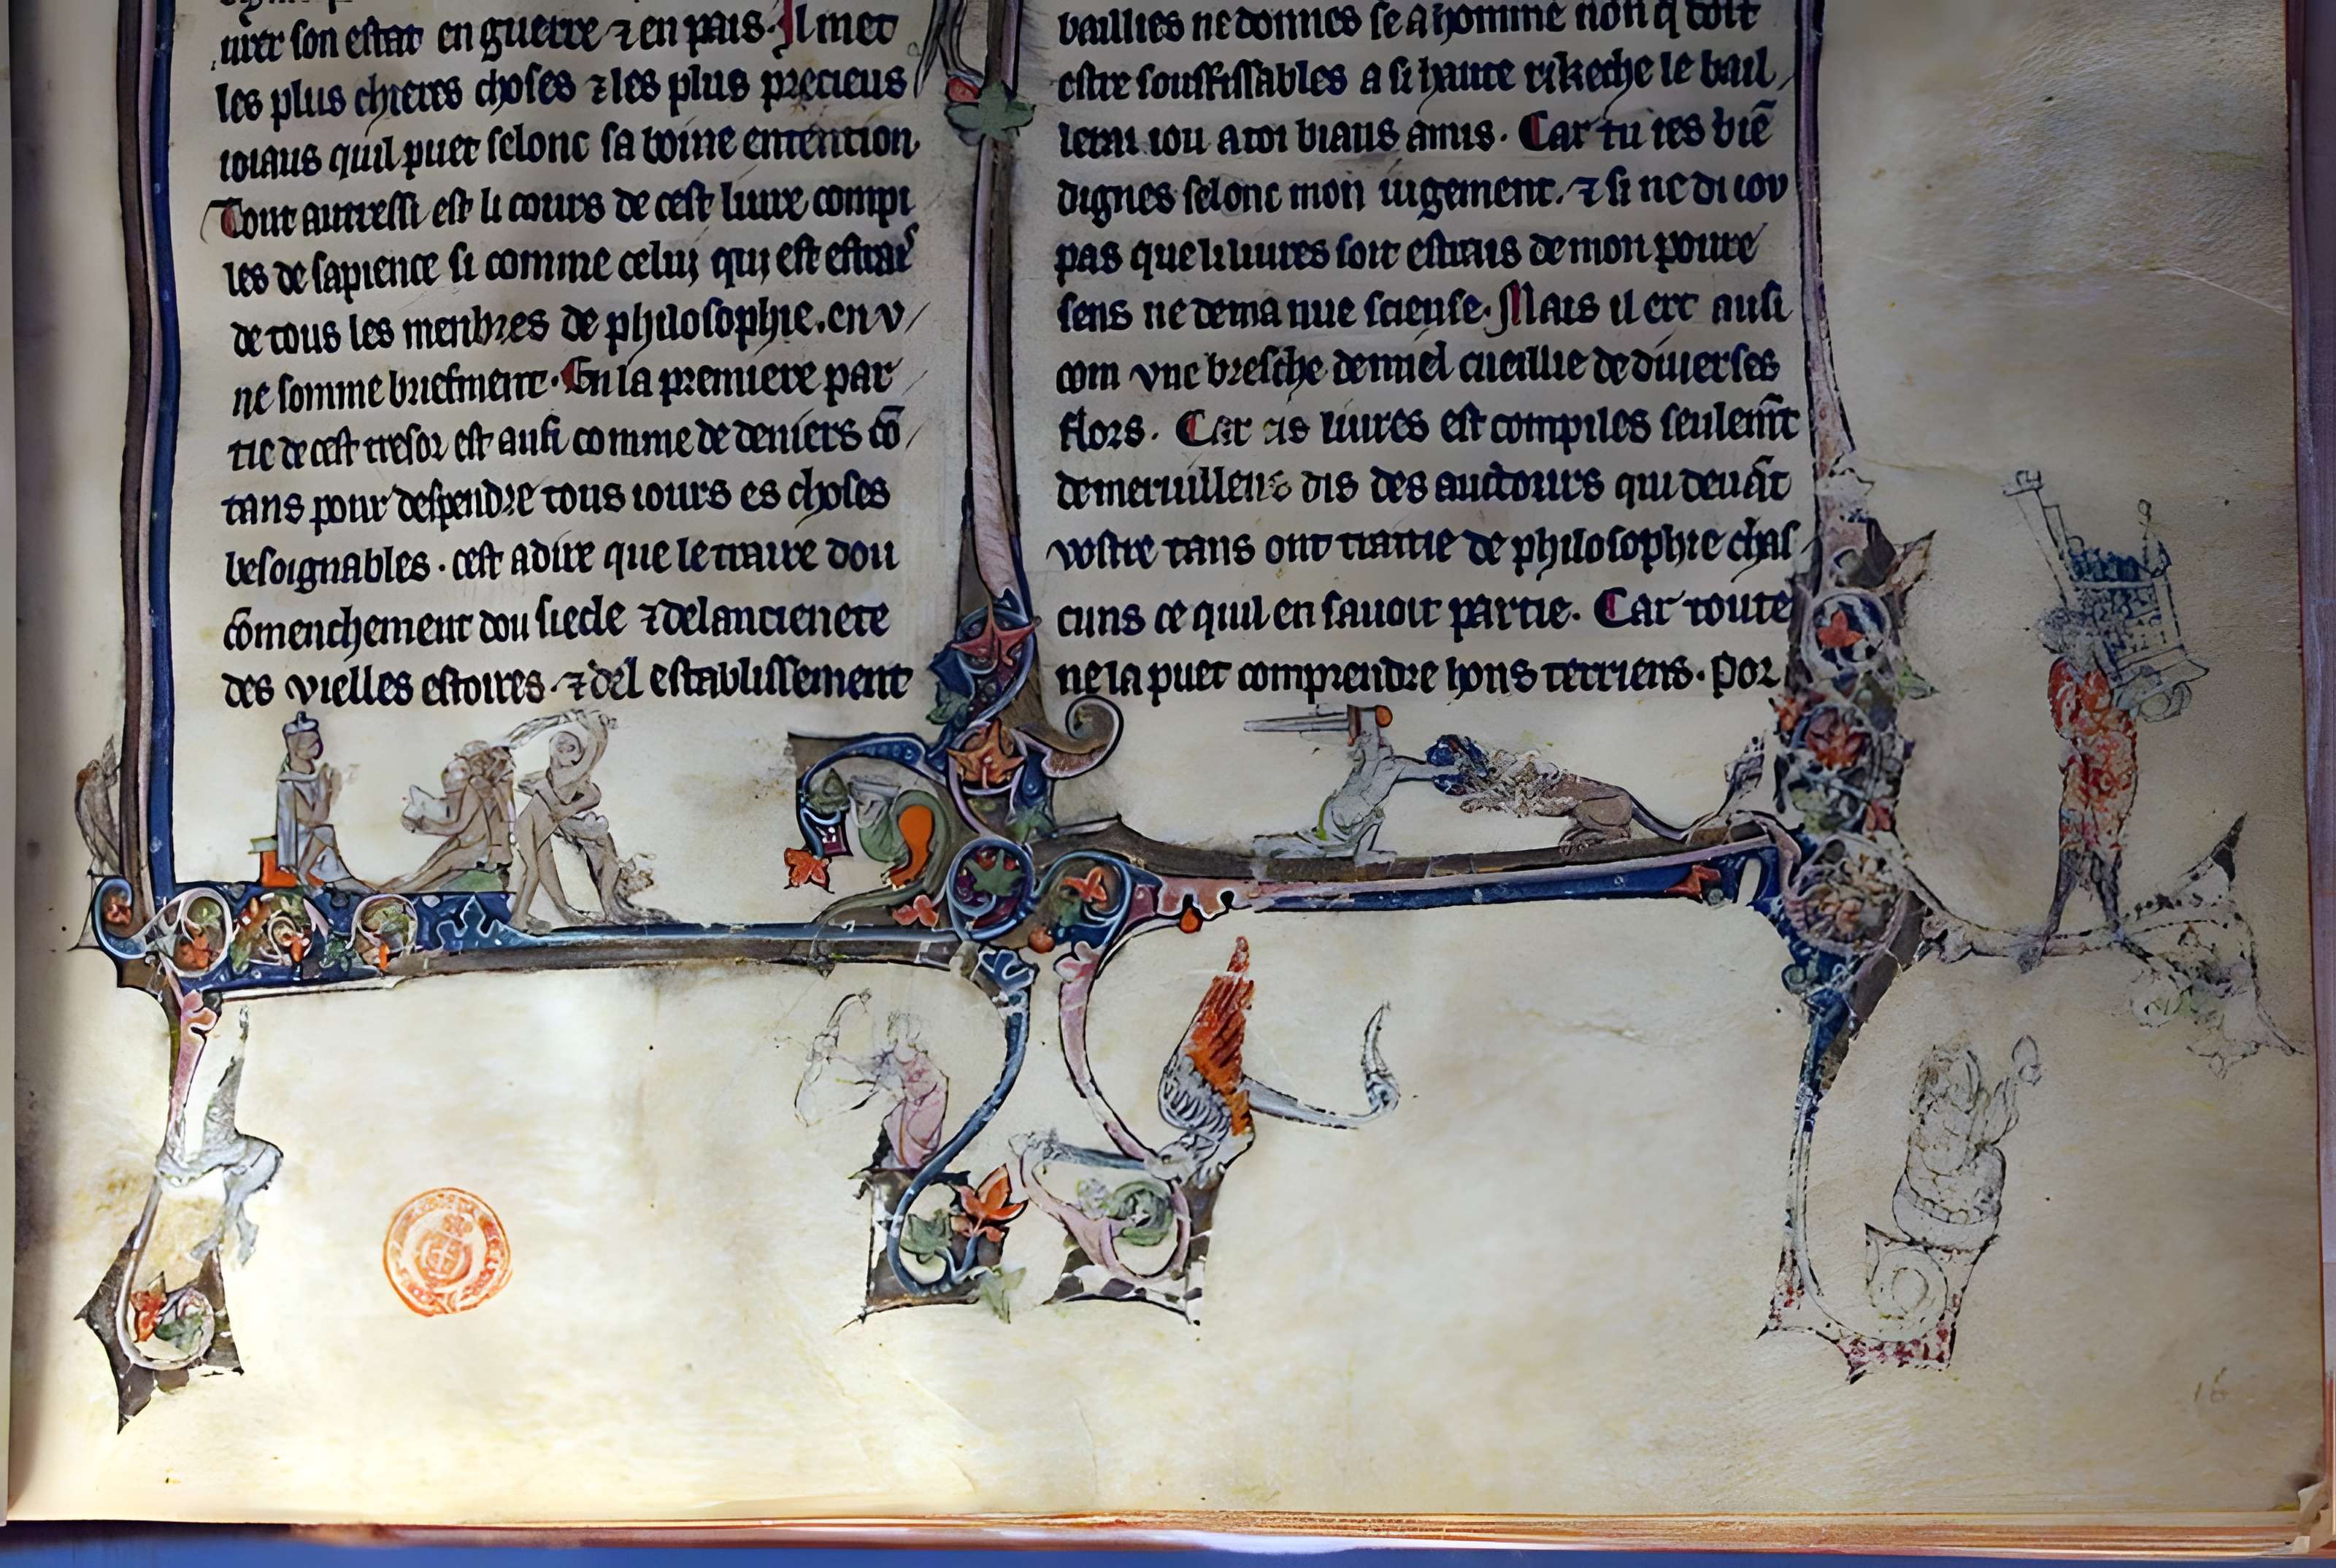 urer son estat en guerre ⁊ en pais. Il met
les plus chieres choses ⁊ les plus precieus
ioiaus quil puet selonc sa boine entention
Tout autressi est li cours de cest liure compi
les de sapience si comme celuj quj est estrais
de tous les menbres de philosophie. en v
ne somme briefment. En la premiere par
tie de cest tresor est ausi comme de deniers cō
tans pour despendre tous iours es choses
besoignables. cest a dire que le traite dou
cōmenchement dou siecle ⁊ del ancienete
des vielles estoires. ⁊ del establissement
baillies ne donnes se a homme non q̄ soit
estre souffissables a si haute rikeche le bail
lerai iou a toi biaus amis. Car tu ies biē
dignes selonc mon iugement. ⁊ si ne di iou
pas que li liures soit estrais de mon poure
sens ne de ma nue sciense. Mais il ert ausi
com vne bresche de miel cueillie de diuerses
flors. Car cis liures est compiles seulemt̄
de meruilleus dis des auctours qui deuāt
vostre tans ont traitie de philosophie chas
cuns ce quil en sauoit partie. Car toute
ne la puet comprendre hons terriens. Por
16